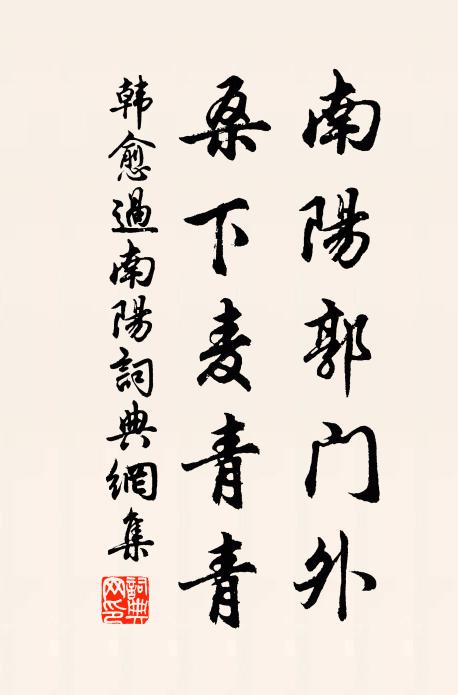 南陽郭门外
桑下麦青青
韩愈過南陽詞典網集
詞典
网印